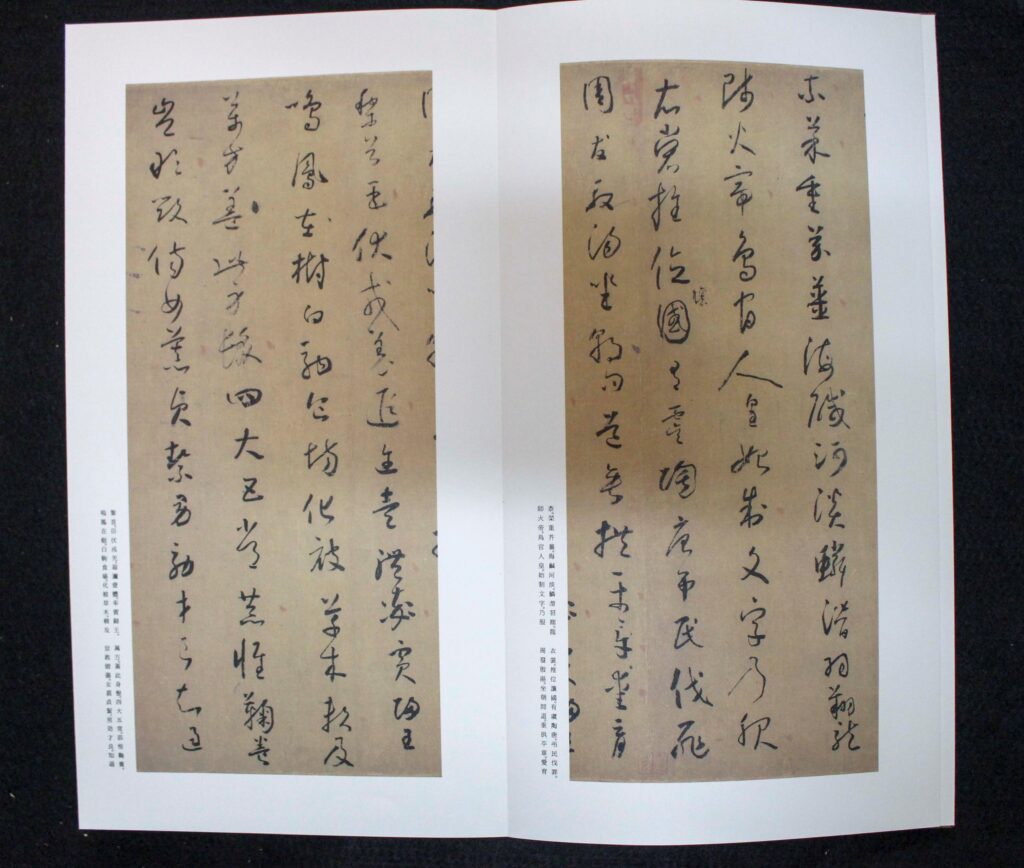 柰菜重芥薑海醎河淡鱗潛羽翔龍
師火帝鳥官人皇始制文字乃服
衣裳推位讓國有虞陶唐弔民伐罪
周發殷湯坐朝問道垂拱平章愛育
柰、菜重芥薑、海鹹河淡、鱗潛羽翔、龍
師火帝、鳥官人皇、始制文字、乃服
衣裳、推位讓國、有虞陶唐、弔民伐罪、
周發殷湯、坐朝問道、垂拱平章、愛育
黎首臣伏戎羌遐迩壹體率賓歸王
鳴鳳在樹白駒食場化被草木賴及
萬方蓋此身髮四大五常恭惟鞠養
豈敢毀傷女慕貞絜男效才良知過
黎首、臣伏戎羌、遐邇壹體、率賓歸王、
鳴鳳在樹、白駒食場、化被草木、賴及
萬方、蓋此身髮、四大五常、恭惟鞠養、
豈敢毀傷、女慕貞絜、男效才良、知過